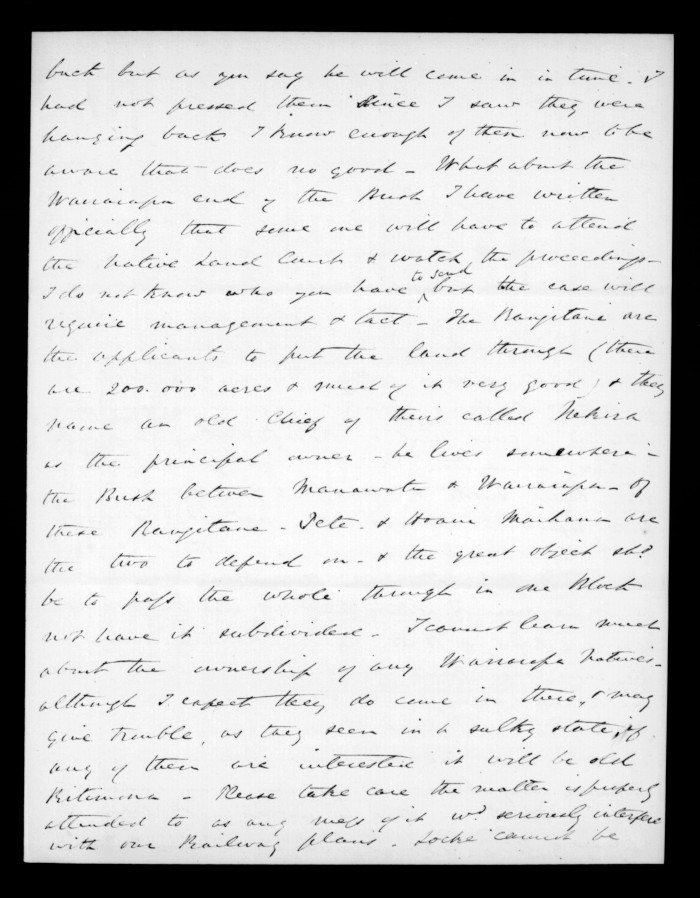 back but as you say he will come in in time. I
had not pressed them since I saw they were
hanging back I know enough of them now to be
aware that does no good - What about the
Wairarapa end of the Bush I have written
officially that some one will have to attend
the Native Land Court & watch the proceedings -
I do not know who you have to send but the case will
require management & tact - The Rangitane are
the applicants to put the land through (there
are 200.000 acres & much of it very good) & they
name an old Chief of theirs called Nekira
as the principal owner - he lives somewhere in
the Bush between Manawatu & Wairarapa - Of
these Rangitane - Pete & Hoani Maihana are
the two to depend on - & the great object shd.
be to pass the whole through in one Block
not have it subdivided - I cannot learn much
about the ownership of any Wairarapa Natives -
although I expect they do come in there, & may
give trouble, as they seem in a sulky state, if
any of them are interested it will be old
Ritimona - Please take care the matter is properly
attended to as any mess of it wd. seriously interfere
with our Railway plans. Locke cannot be